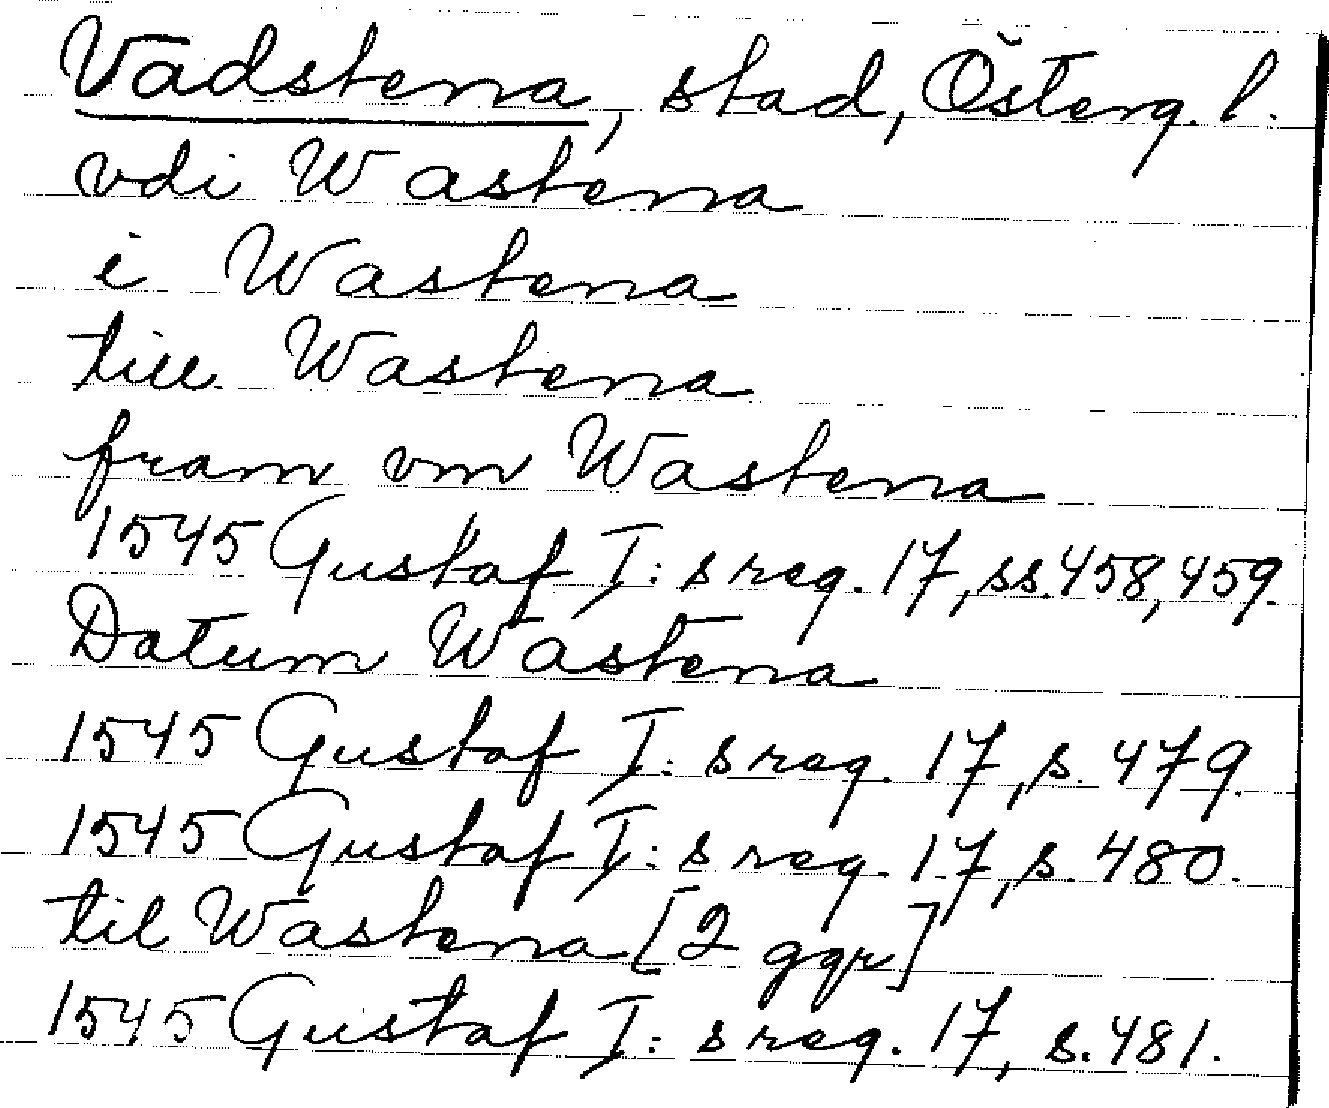 Vadstena, stad, Österg. l.
vdi Wastena
i Wastena
till Wastena
fram vm Wastena
1545 Gustaf I:s reg. 17, ss. 458, 459.
Datum Wastena
1545 Gustaf I:s reg. 17, s. 479.
1545 Gustaf I:s reg. 17, s. 480.
til Wastena [2 ggr]
1545 Gustaf I:s reg. 17, s. 481.